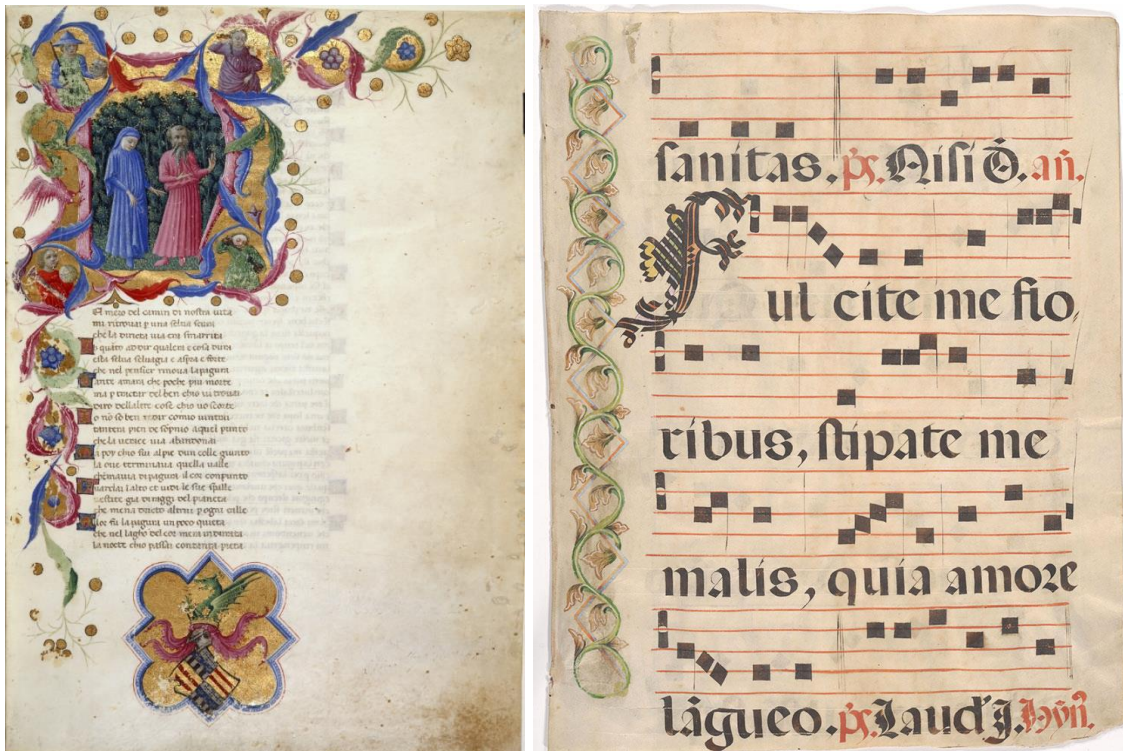 El mezo del camin di nostra uita
mi ritrouai p una selua scura
che la diricta uia era smarrita
quāto addir qualera e cosa dura
esta selua seluagia e aspra e forte
che nel pensier rinoua lapagura
ante amara che poche piu morte
ma p tractar del ben chio ui trouai
diro dellaltre cose chio uo scorte
o nō so ben redir comio uintrai
tantera pien de sopnio aquel punto
che la uerace uia abandonai
a poy chio fui alpie dun colle giunto
la oue terminaua quella ualle
chemauia di pagura il cor conpunto
uardai lalto et uidi le sue spalle
uestite gia di raggi del pianeta
che mena dricto altrui p ogni calle
lor fu la pagura un poco quieta
che nel lagho del cor mera
la nocte chio passai contanta pieta
sanitas. ps. Nisi D̄. añ.
Fulcite me flo
ribus, stipate me
malis, quia amore
lāgueo. ps. Laud J. Hym̄.